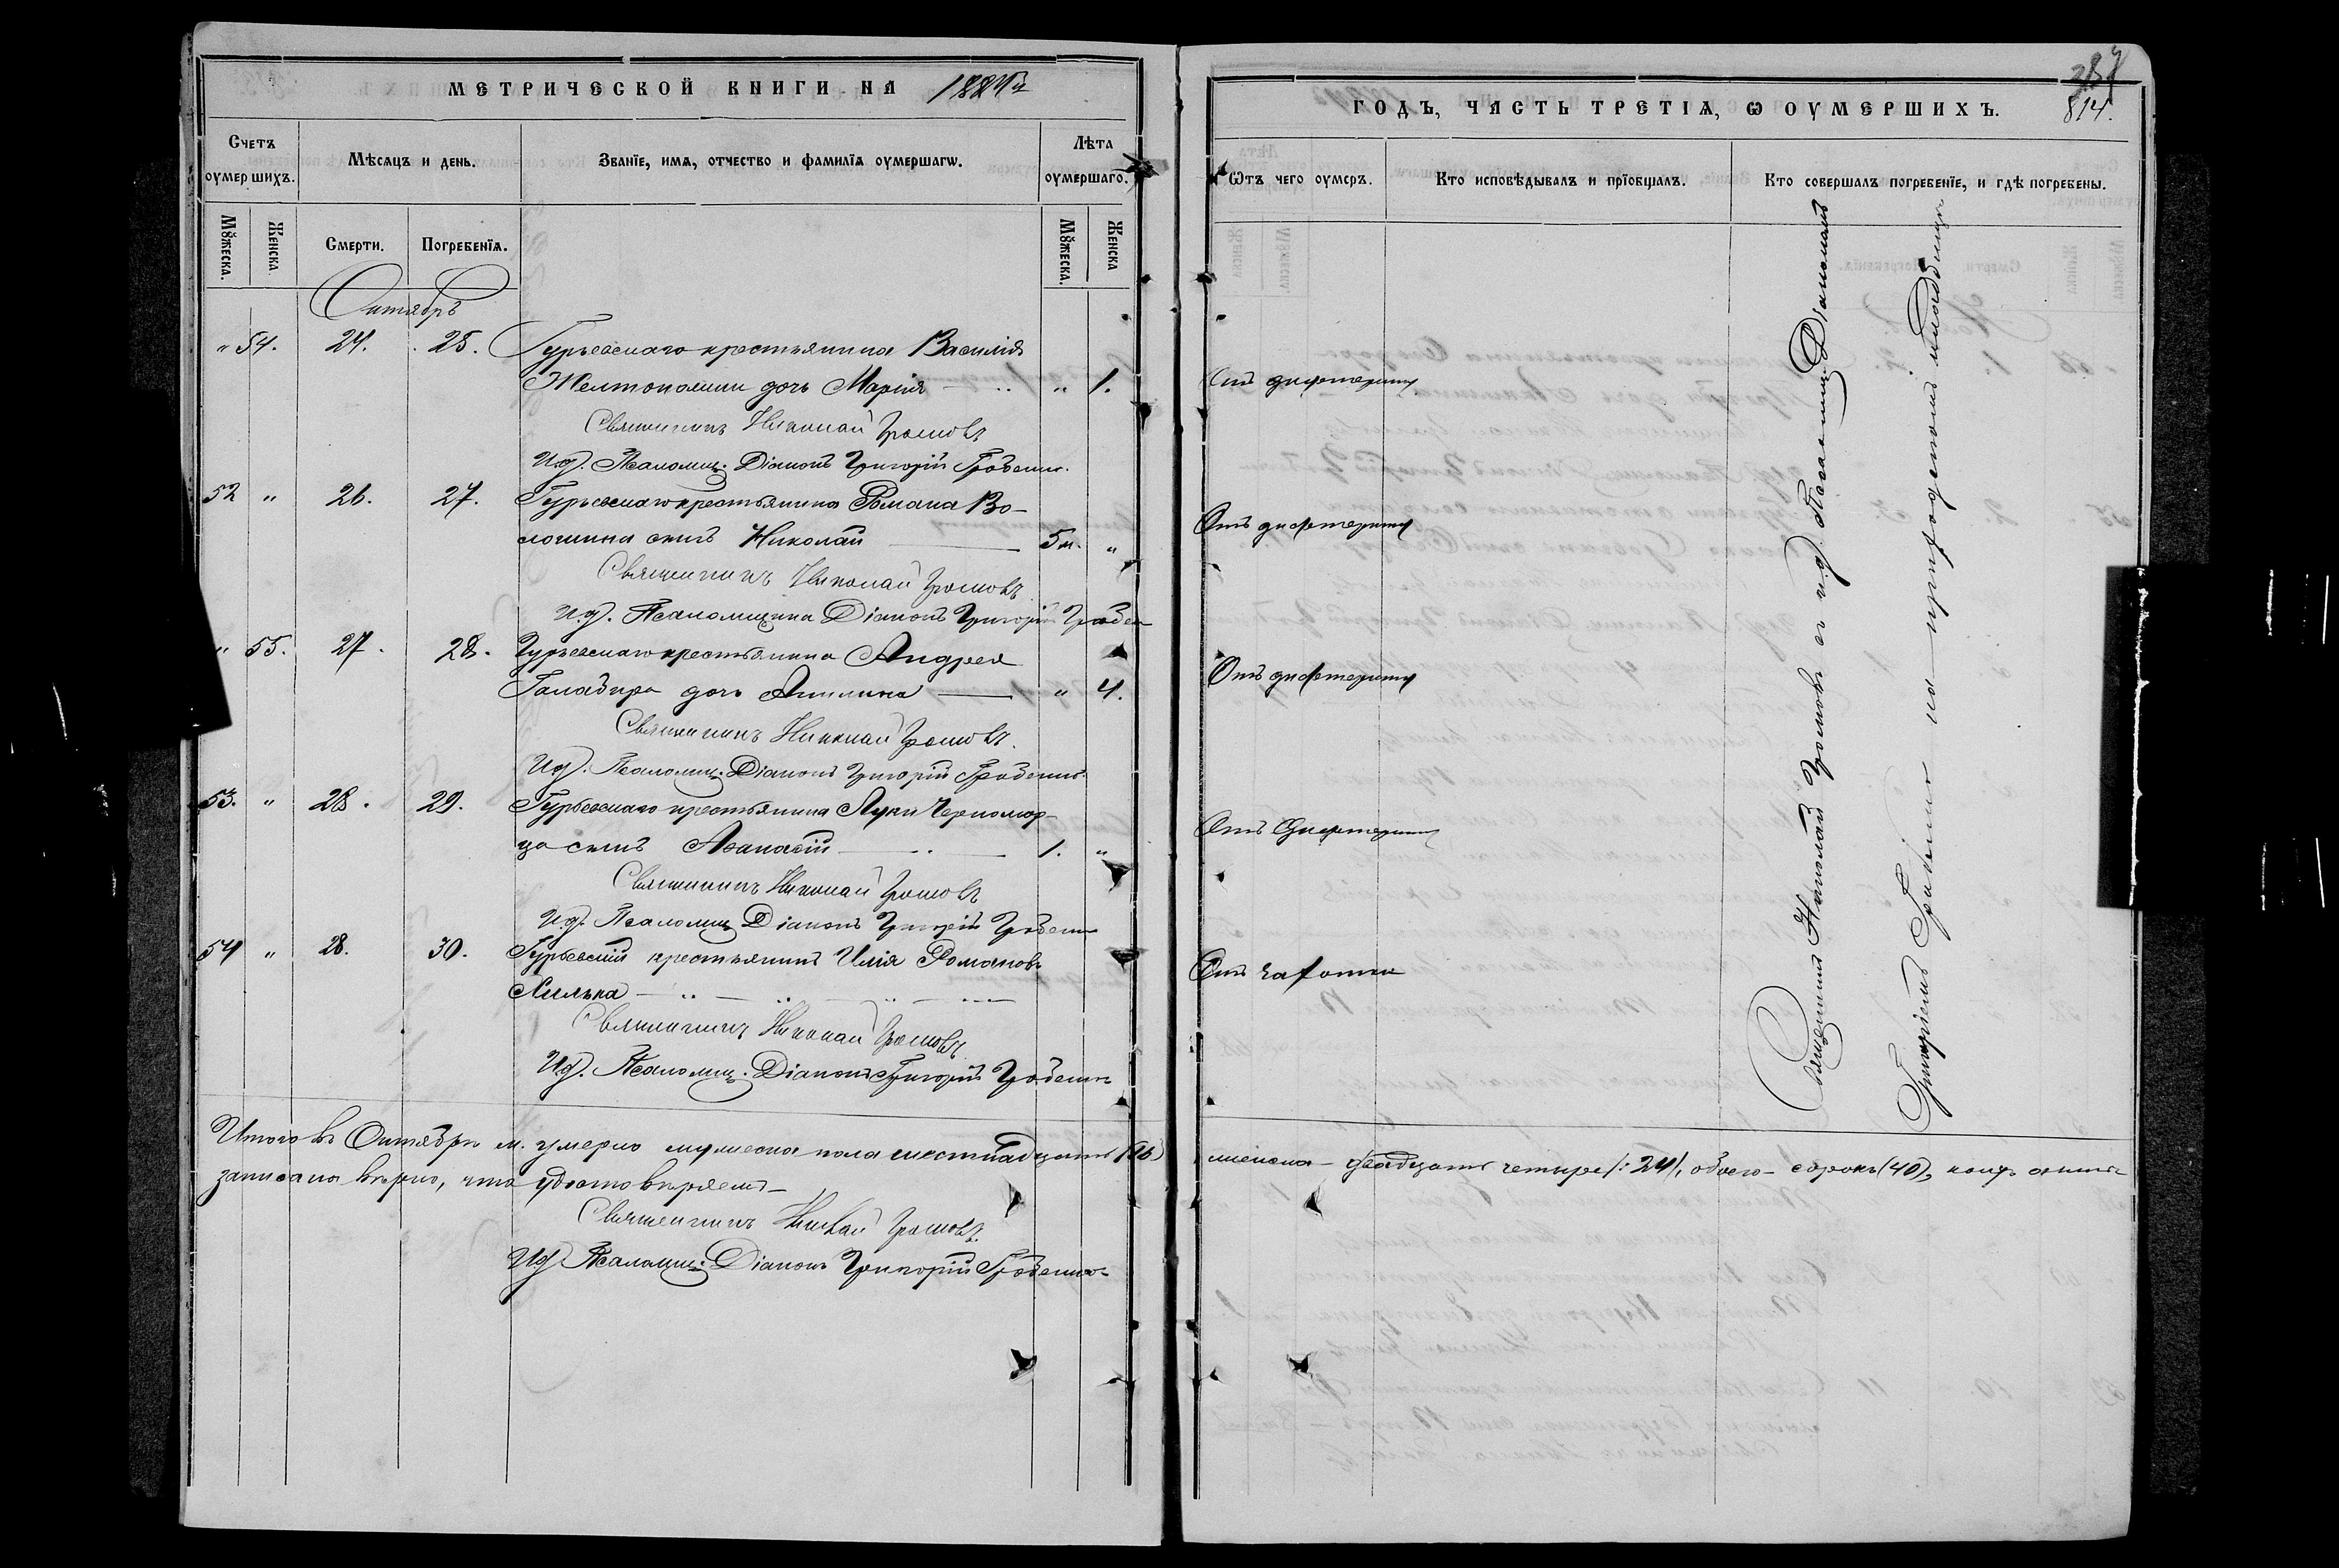 МЕТРИЧЕСКОЙ КНИГИ НА
ГОДЪ, ЧАСТЬ ТРЕТІЯ, Ѡ ОУМЕРШИХЪ.
814.
Счетъ оумершихъ.
Мѣсяцъ и день.
Званіе, имя, отчество и фамилія оумершагѡ.
Лѣта оумершаго.
Ѿтъ чего оумеръ.
Кто исповѣдывалъ и пріобщалъ.
Кто совершалъ погребеніе, и гдѣ погребены.
Мꙋжеска.
Женска
Смерти.
Погребенія.
Мꙋжеска.
Женска
Октябрь
" 54. 24. 25. Гурьевскаго крестьянина Василія
дочь Марія " 1. Отъ дифтерита
Священникъ Николай Громовъ
И.д. Псаломщ. Діаконъ Григорій
52 " 26. 27. Гурьевскаго крестьянина Романа Во-
лошина сынъ Николай 5 м. " Отъ дифтерита
Священникъ Николай Громовъ
И.д. Псаломщика Діаконъ Григорій
" 55. 27. 28. Гурьевскаго крестьянина Андрея
дочь Акилина " 4. Отъ дифтерита
Священникъ Николай Громовъ.
И.д. Псаломщ. Діаконъ Григорій
53. " 28. 29. Гурьевскаго крестьянина Луки Черномор-
ца сынъ Аѳанасій 1. " Отъ дифтерита
Священникъ Николай Громовъ
И.д. Псаломщ. Діаконъ Григорій
54 " 28. 30. Гурьевскій крестьянинъ Илія Романовъ
Отъ чахотки
Священникъ Николай Громовъ
И.д. Псаломщ. Діаконъ Григорій
Священникъ Николай Громовъ съ и.д. Псаломщ. Діакономъ
Григоріемъ на приходскомъ кладбищѣ
Итого въ Октябрѣ м. умерло мужеска пола шестнадцать (16) женска – двадцать четыре /:24/, обоего – сорокъ (40),
записано вѣрно, что удостовѣряемъ –
Священникъ Николай Громовъ.
И.д. Псаломщ. Діаконъ Григорій